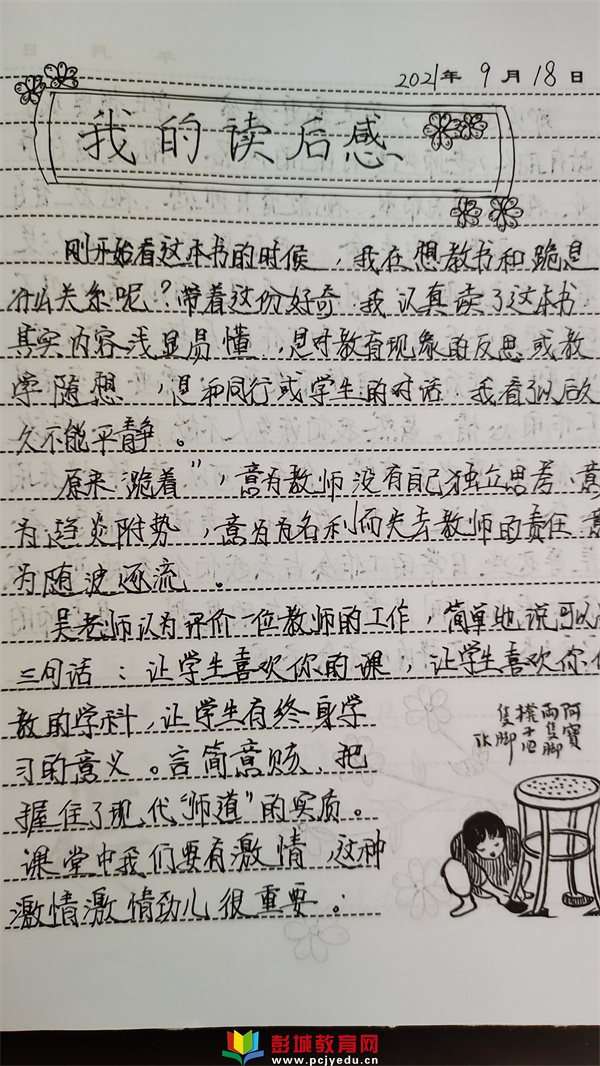 2021年 9月 18日
我的读后感
刚开始看这本书的时候，我在想教书和跪是
什么关系呢？带着这份好奇，我认真读了这本书
其实内容浅显易懂，是对教育现象的反思或教
学随想，是和同行或学生的对话，我看了以后
久不能平静。
原来“跪着”，意为教师没有自己独立思考，意
为趋炎附势，意为为名利而失去教师的责任，意
为随波逐流。
吴老师认为评价一位教师的工作，简单地说可以
三句话：让学生喜欢你的课，让学生喜欢你
教的学科，让学生有终身学
习的意义。言简意赅，把
握住了现代“师道”的实质。
课堂中我们要有激情，这种
激情激情劲儿很重要。
阿寶
兩隻腳
櫈子四
隻腳
彭城教育网
www.pcjyedu.cn